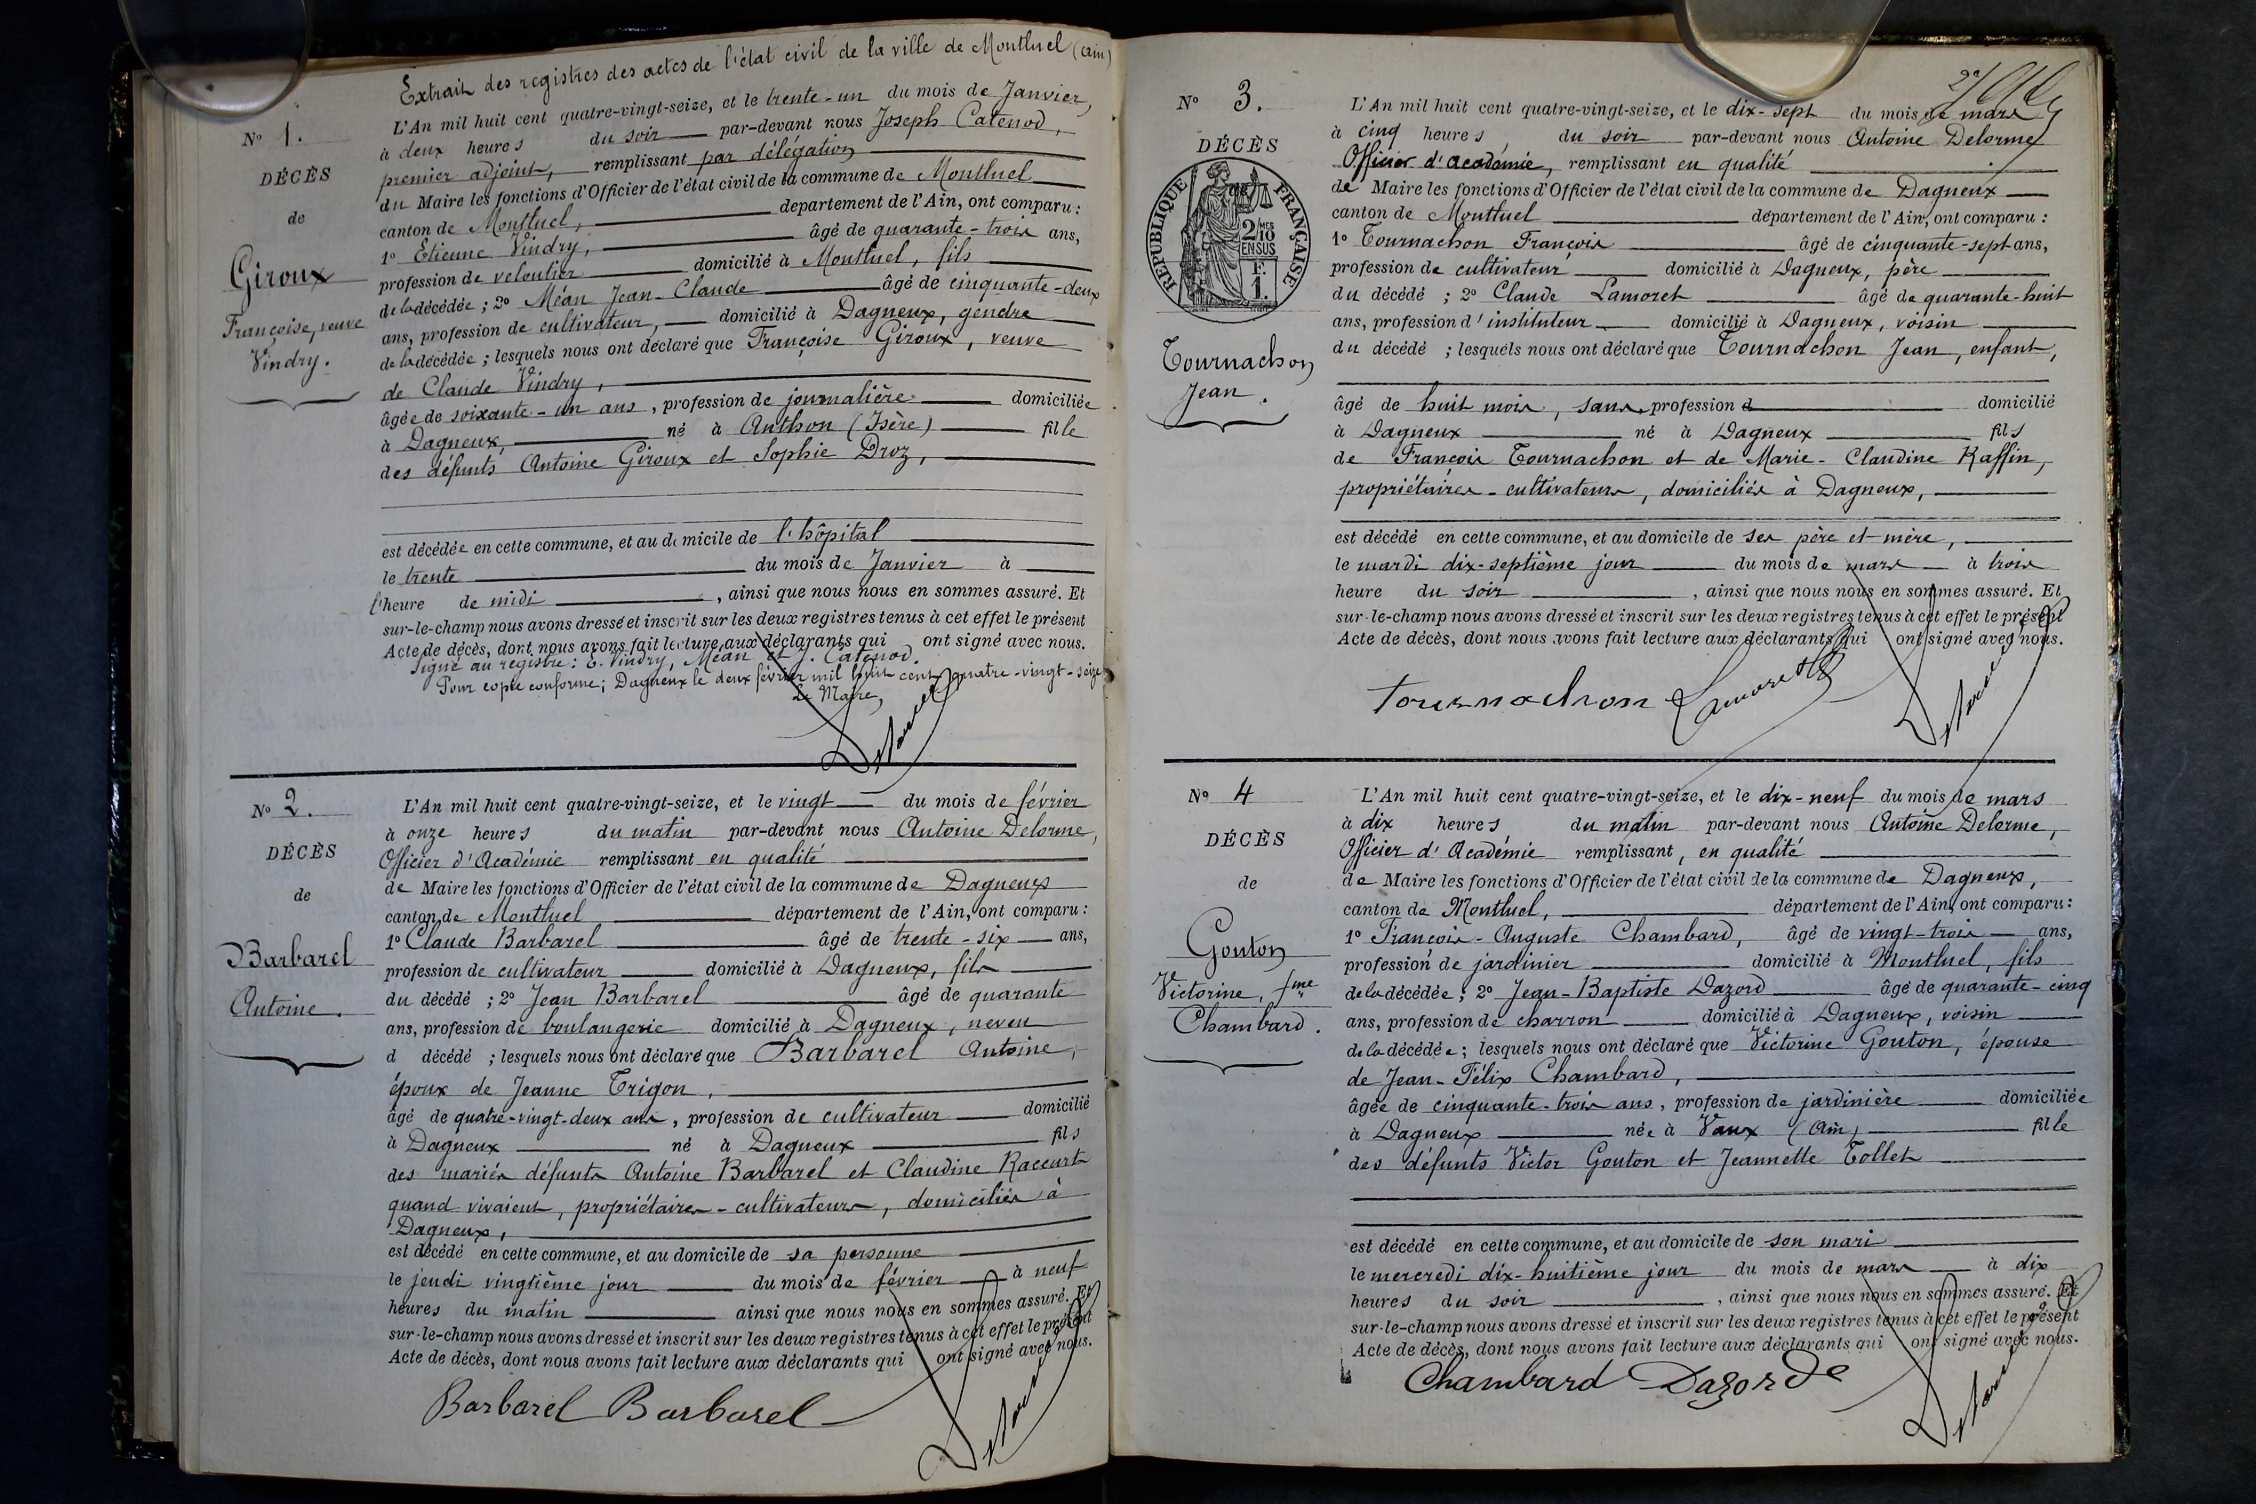 Extrait des registres des actes de l'état civil de la ville de Montluel (ain)
N° 1.
DÉCÈS
de
Giroux
Françoise, veuve
Vindry.
L'An mil huit cent quatre-vingt-seize, et le trente-un du mois de Janvier,
à deux heures du soir par-devant nous Joseph Catenod,
premier adjoint, remplissant par délégation
du Maire les fonctions d'Officier de l'état civil de la commune de Montluel
canton de Montluel, departement de l'Ain, ont comparu :
1° Etienne Vindry, âgé de quarante-trois ans,
profession de veloutier domicilié à Montluel, fils
de la décédée ; 2° Méan Jean-Claude âgé de cinquante-deux
ans, profession de cultivateur, domicilié à Dagneux, gendre
de la décédée ; lesquels nous ont déclaré que Françoise Giroux, veuve
de Claude Vindry,
âgée de soixante-un ans, profession de journalière domiciliée
à Dagneux, né à Anthon (Isère) fille
des défunts Antoine Giroux et Sophie Droz,
est décédée en cette commune, et au domicile de l'hôpital
le trente du mois de Janvier à
l'heure de midi , ainsi que nous nous en sommes assuré. Et
sur-le-champ nous avons dressé et inscrit sur les deux registres tenus à cet effet le présent
Acte de décès, dont nous avons fait lecture aux déclarants qui ont signé avec nous.
Signé au registre : E. Vindry, Méan et J. Catenod.
Pour copie conforme ; Dagneux le deux février mil huit cent quatre-vingt-seize
Le Maire,
Delorme
N° 2.
DÉCÈS
de
Barbarel
Antoine.
L'An mil huit cent quatre-vingt-seize, et le vingt du mois de février
à onze heures du matin par-devant nous Antoine Delorme,
Officier d'Académie remplissant en qualité
de Maire les fonctions d'Officier de l'état civil de la commune de Dagneux
canton de Montluel département de l'Ain, ont comparu :
1° Claude Barbarel âgé de trente-six ans,
profession de cultivateur domicilié à Dagneux, fils
du décédé ; 2° Jean Barbarel âgé de quarante
ans, profession de boulangerie domicilié à Dagneux, neveu
d décédé ; lesquels nous ont déclaré que Barbarel Antoine,
époux de Jeanne Trigon,
âgé de quatre-vingt-deux ans, profession de cultivateur domicilié
à Dagneux né à Dagneux fils
des mariés défunts Antoine Barbarel et Claudine Raccurt
quand vivaient, propriétaires-cultivateurs, domiciliés à
Dagneux,
est décédé en cette commune, et au domicile de sa personne
le jeudi vingtième jour du mois de février à neuf
heures du matin ainsi que nous nous en sommes assuré. Et
sur-le-champ nous avons dressé et inscrit sur les deux registres tenus à cet effet le présent
Acte de décès, dont nous avons fait lecture aux déclarants qui ont signé avec nous.
Barbarel Barbarel
Delorme
N° 3.
DÉCÈS
RÉPUBLIQUE FRANÇAISE
2 MES
10
EN SUS
F.
1.
Tournachon
Jean.
L'An mil huit cent quatre-vingt-seize, et le dix-sept du mois de mars
à cinq heures du soir par-devant nous Antoine Delorme
Officier d'académie, remplissant en qualité
de Maire les fonctions d'Officier de l'état civil de la commune de Dagneux
canton de Montluel département de l'Ain, ont comparu :
1° Tournachon François âgé de cinquante-sept ans,
profession de cultivateur domicilié à Dagneux, père
du décédé ; 2° Claude Lamoret âgé de quarante-huit
ans, profession d'instituteur domicilié à Dagneux, voisin
du décédé ; lesquels nous ont déclaré que Tournachon Jean, enfant,
âgé de huit mois, sans profession d domicilié
à Dagneux né à Dagneux fils
de François Tournachon et de Marie-Claudine Raffin,
propriétaires-cultivateurs, domiciliés à Dagneux,
est décédé en cette commune, et au domicile de ses père et mère,
le mardi dix-septième jour du mois de mars à trois
heure du soir , ainsi que nous nous en sommes assuré. Et
sur-le-champ nous avons dressé et inscrit sur les deux registres tenus à cet effet le présent
Acte de décès, dont nous avons fait lecture aux déclarants qui ont signé avec nous.
Tournachon Lamoret
Delorme
N° 4
DÉCÈS
de
Gouton
Victorine, fme
Chambard.
L'An mil huit cent quatre-vingt-seize, et le dix-neuf du mois de mars
à dix heures du matin par-devant nous Antoine Delorme,
Officier d'Académie remplissant, en qualité
de Maire les fonctions d'Officier de l'état civil de la commune de Dagneux,
canton de Montluel, département de l'Ain, ont comparu :
1° François-Auguste Chambard, âgé de vingt-trois ans,
profession de jardinier domicilié à Montluel, fils
de la décédée ; 2° Jean-Baptiste Dazord âgé de quarante-cinq
ans, profession de charron domicilié à Dagneux, voisin
de la décédée ; lesquels nous ont déclaré que Victorine Gouton, épouse
de Jean-Félix Chambard,
âgée de cinquante-trois ans, profession de jardinière domiciliée
à Dagneux née à Vaux (Ain) fille
des défunts Victor Gouton et Jeannette Tollet
est décédé en cette commune, et au domicile de son mari
le mercredi dix-huitième jour du mois de mars à dix
heures du soir , ainsi que nous nous en sommes assuré. Et
sur-le-champ nous avons dressé et inscrit sur les deux registres tenus à cet effet le présent
Acte de décès, dont nous avons fait lecture aux déclarants qui ont signé avec nous.
Chambard Dazorde
Delorme